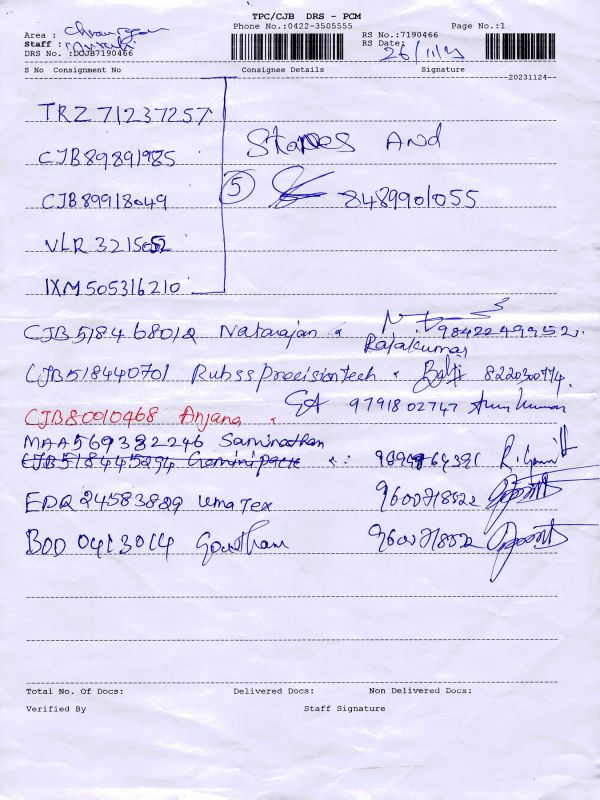 TPC/CJB DRS - PCM
Phone No.:0422-3505555 Page No.:1
Area :
Staff :
RS No.:7190466
RS Date: 26/11/
DRS No. :DCJB7190466
S No Consignment No Consignee Details Signature
20231124
TRZ 71237257
CJB89891985
CJB89918049
VLR 3215052
IXM505316210
Stanes And
5 8489901055
CJB518468012 Natarajan 9842249952
Rajaikumar
CJB518440701 Rubss precision tech 8220300774
CJB80010468 Anjana 9791802747 Arun kumar
MAA569382246 Saminathan
CJB518445294 Geminipack
EDQ 24583829 Uma Tex 9600718522
BOD 0413014 Goutham 9600718522
Total No. Of Docs: Delivered Docs: Non Delivered Docs:
Verified By Staff Signature